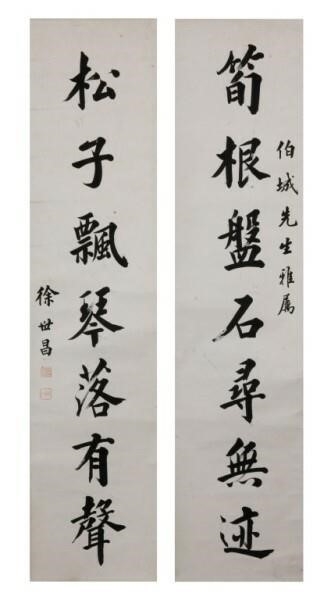 伯城先生雅属
筍根盤石尋無迹
松子飄琴落有聲
徐世昌